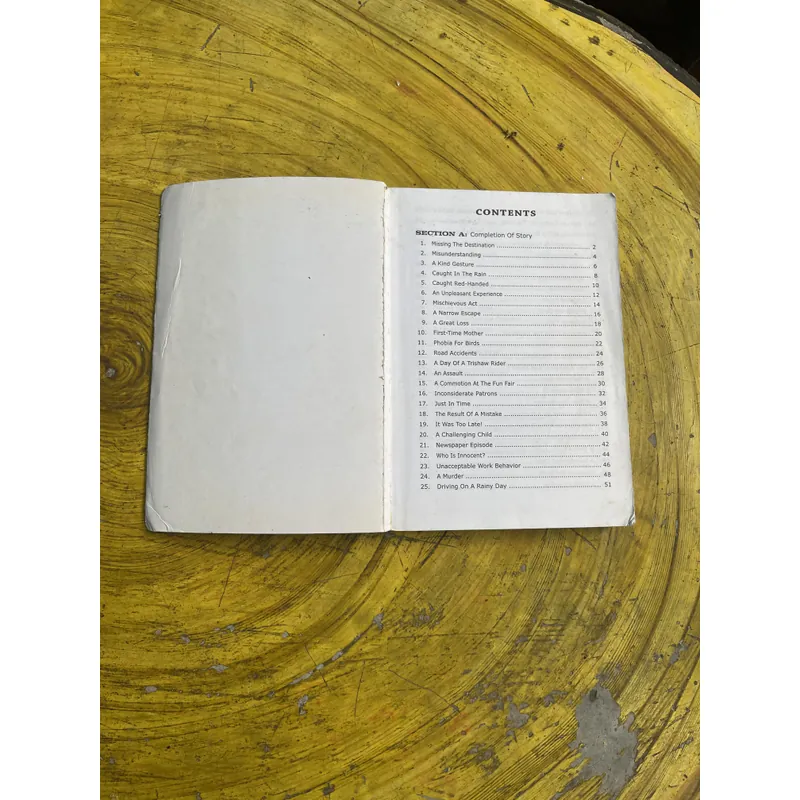 CONTENTS
SECTION A: Completion Of Story
1. Missing The Destination 2
2. Misunderstanding 4
3. A Kind Gesture 6
4. Caught In The Rain 8
5. Caught Red-Handed 10
6. An Unpleasant Experience 12
7. Mischievous Act 14
8. A Narrow Escape 16
9. A Great Loss 18
10. First-Time Mother 20
11. Phobia For Birds 22
12. Road Accidents 24
13. A Day Of A Trishaw Rider 26
14. An Assault 28
15. A Commotion At The Fun Fair 30
16. Inconsiderate Patrons 32
17. Just In Time 34
18. The Result Of A Mistake 36
19. It Was Too Late! 38
20. A Challenging Child 40
21. Newspaper Episode 42
22. Who Is Innocent? 44
23. Unacceptable Work Behavior 46
24. A Murder 48
25. Driving On A Rainy Day 51